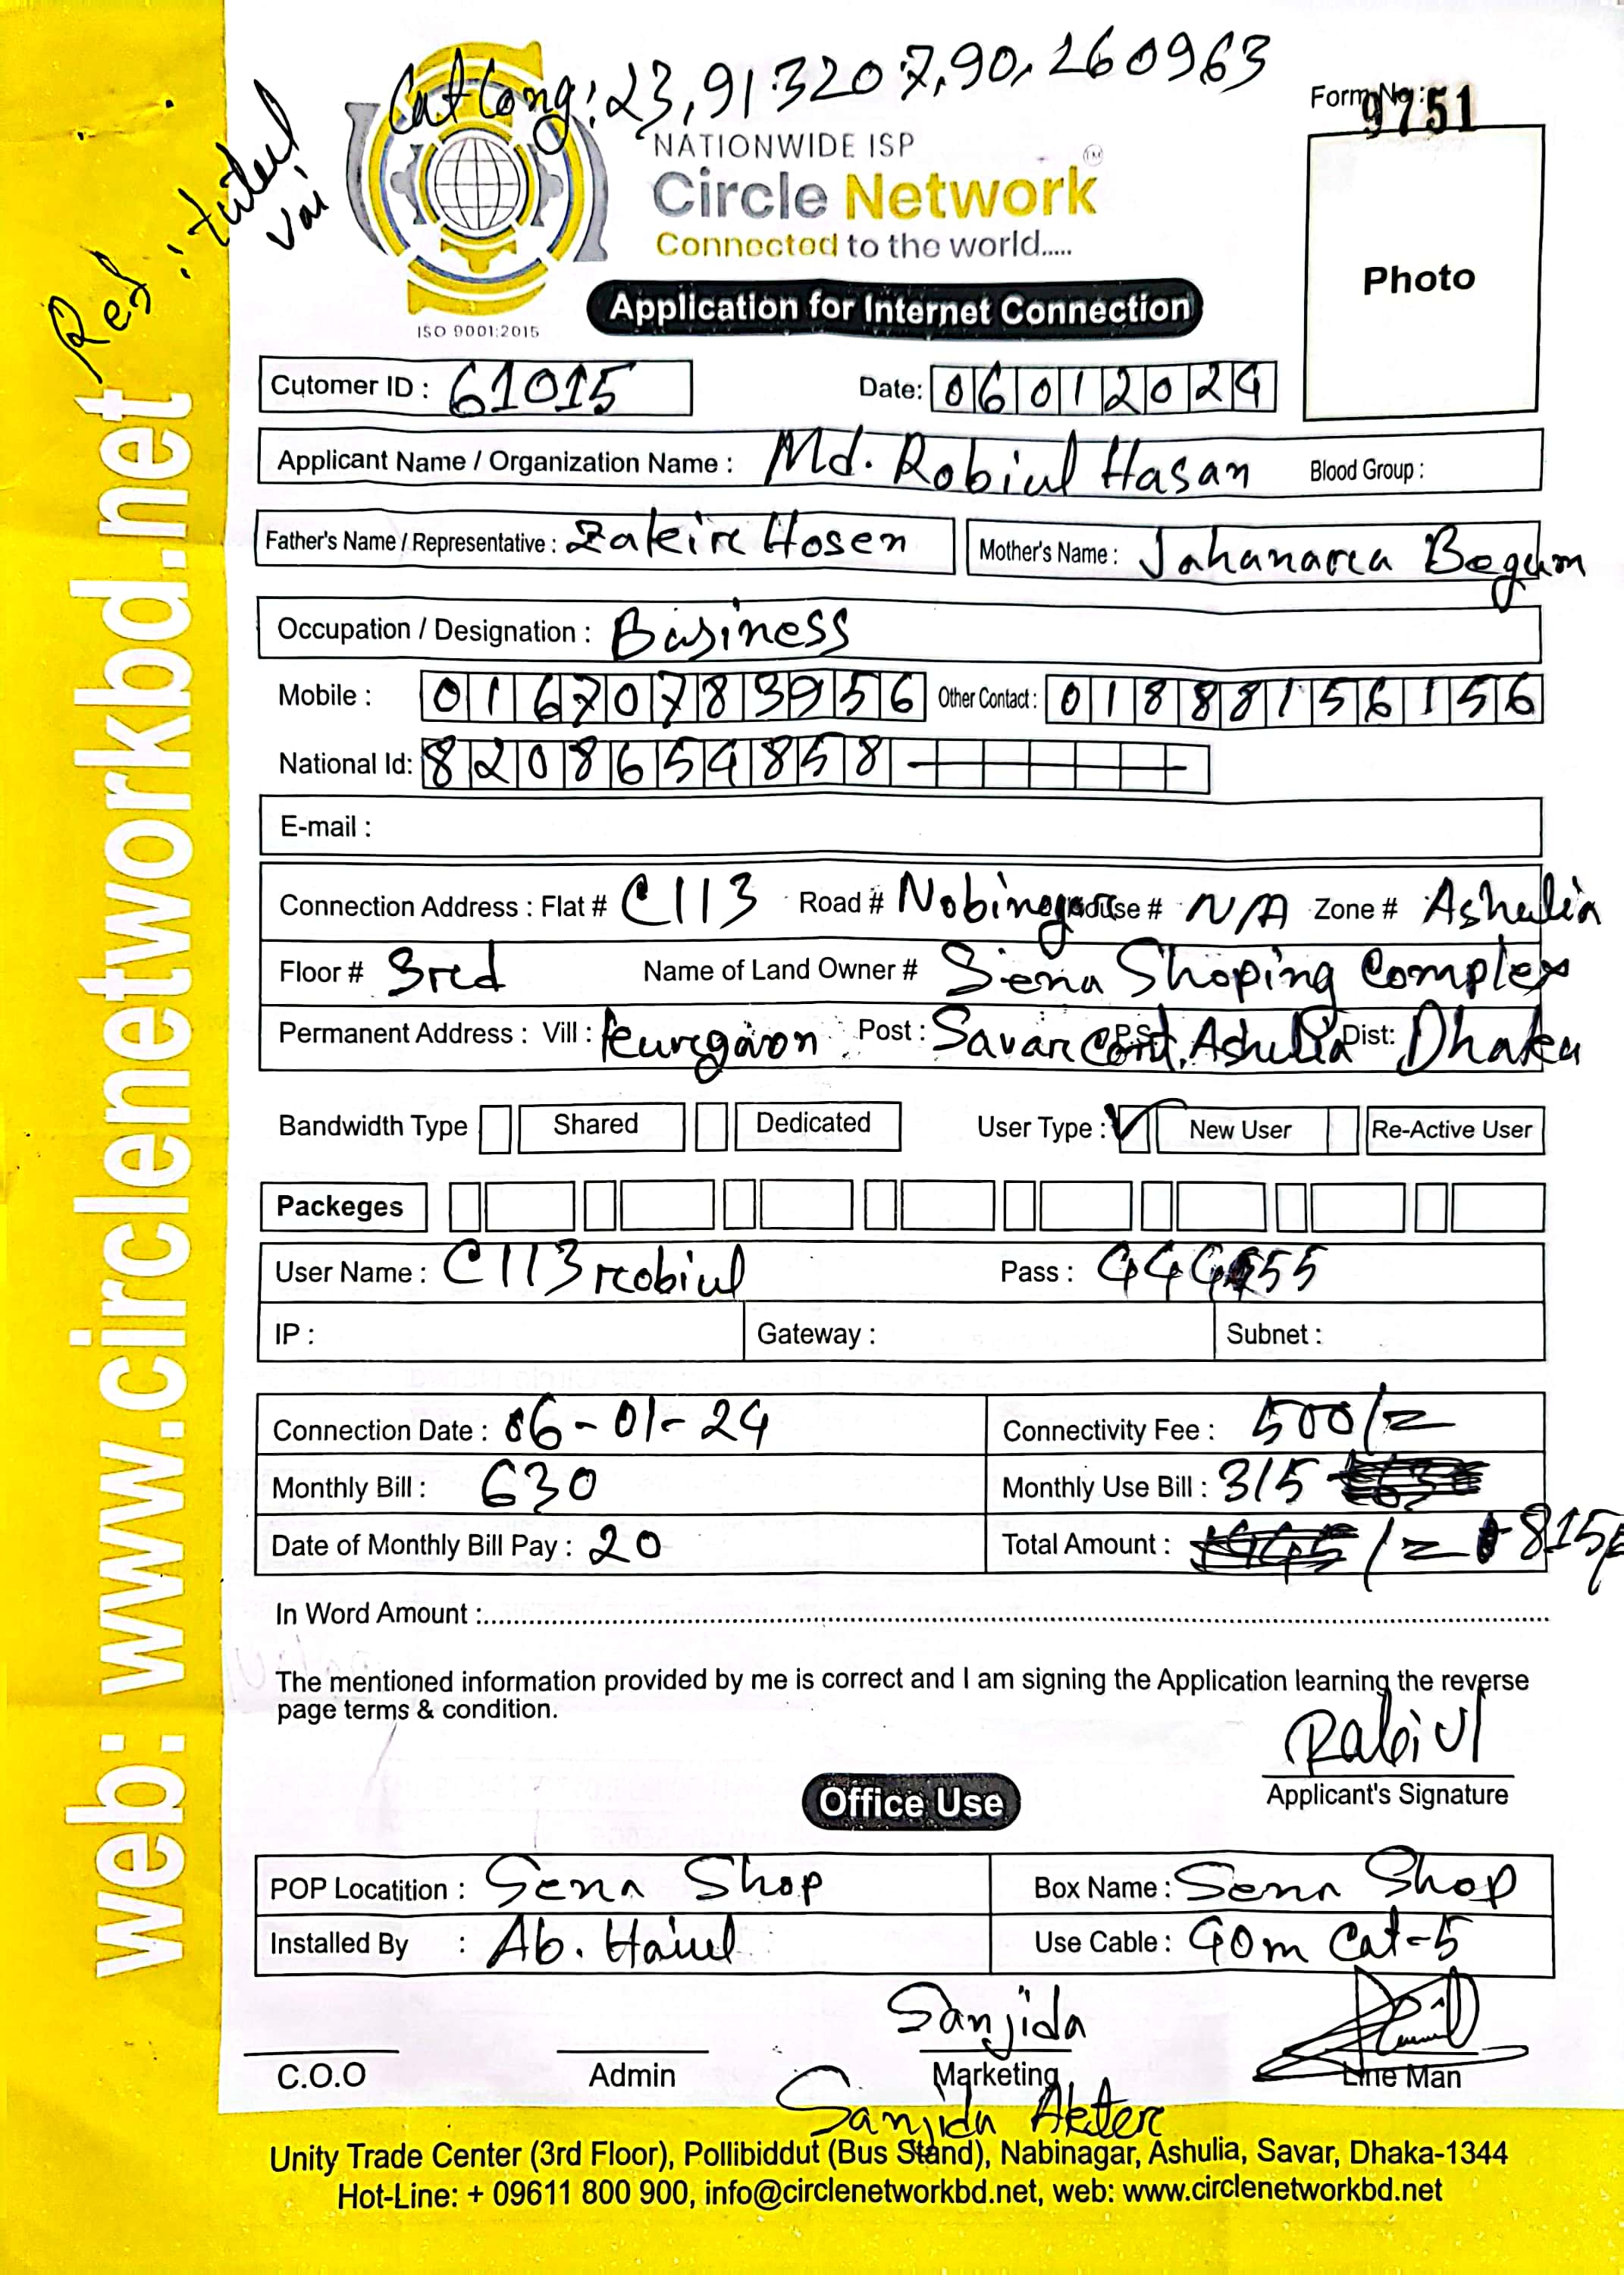 Lat Long: 23,913207,90,260963
Form No : 9751
Ref : tutul
vai
NATIONWIDE ISP
Circle Network
TM
Connected to the world.....
ISO 9001:2015
Application for Internet Connection
Photo
Cutomer ID : 61015 Date: 06012024
Applicant Name / Organization Name : Md. Robiul Hasan Blood Group :
Father's Name / Representative : Zakire Hosen Mother's Name : Jahanara Begum
Occupation / Designation : Business
Mobile : 01670783956 Other Contact : 01888156156
National Id: 8208654858
E-mail :
Connection Address : Flat # C113 Road # Nobinogor House # N/A Zone # Ashulia
Floor # 3rd Name of Land Owner # Siena Shoping Complex
Permanent Address : Vill : Post : Savar Cant, P.S: Ashulia Dist: Dhaka
Bandwidth Type Shared Dedicated User Type : ✓ New User Re-Active User
Packeges
User Name : C113robiul Pass : 444555
IP : Gateway : Subnet :
Connection Date : 06-01-24 Connectivity Fee : 500/=
Monthly Bill : 630 Monthly Use Bill : 315
Date of Monthly Bill Pay : 20 Total Amount : /= 815
In Word Amount :
The mentioned information provided by me is correct and I am signing the Application learning the reverse
page terms & condition.
Rabiul
Applicant's Signature
Office Use
POP Locatition : Sena Shop Box Name : Sena Shop
Installed By : Ab. Use Cable : 40m Cat-5
Sanjida
C.O.O Admin Marketing Line Man
Sanjida Akter
Unity Trade Center (3rd Floor), Pollibiddut (Bus Stand), Nabinagar, Ashulia, Savar, Dhaka-1344
Hot-Line: + 09611 800 900, info@circlenetworkbd.net, web: www.circlenetworkbd.net
web: www.circlenetworkbd.net